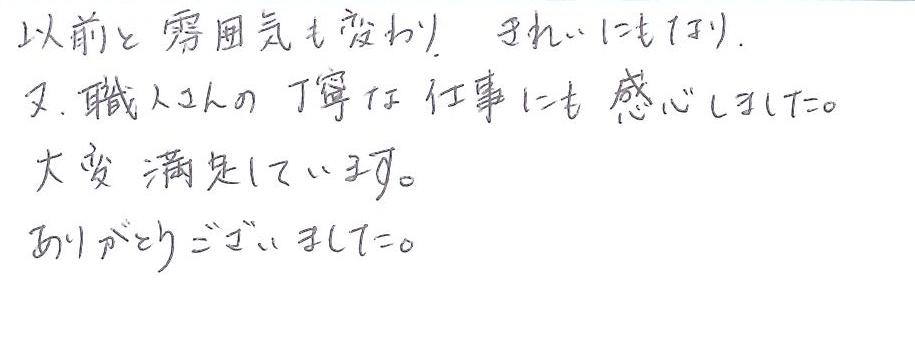 以前と雰囲気も変わり、きれいにもなり、
又、職人さんの丁寧な仕事にも感心しました。
大変満足しています。
ありがとうございました。